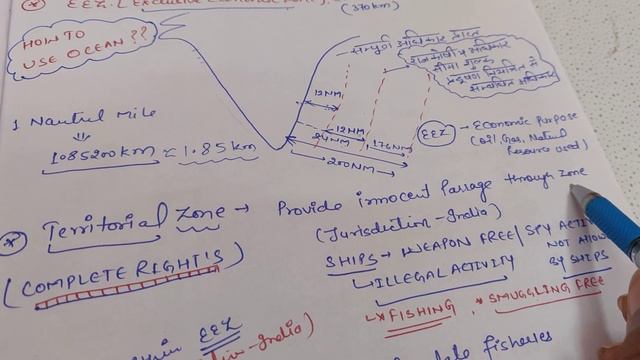 * EEZ. (Exclusive Economic Zone).
(370km)
HOW TO
USE OCEAN??
सम्पूर्ण अधिकार
राजकोषीय अधिकार
सीमा शुल्क
प्रदूषण नियंत्रण से
सम्बंधित अधिकार
12NM
1 Nautral mile
⇓
1.85200km ≈ 1.85 km
12NM
24NM
176NM
200NM
EEZ → Economic Purpose
(oil, Gas, Natural
Resource used)
* Territorial Zone → Provide innocent Passage through zone
(Jurisdiction-India)
(COMPLETE RIGHT'S)
SHIPS → WEAPON FREE / SPY ACTIV
NOT ALLOW
BY SHIPS
↳ ILLEGAL ACTIVITY
↳ *FISHING, *SMUGGLING FREE
EEZ
India)
fisheries